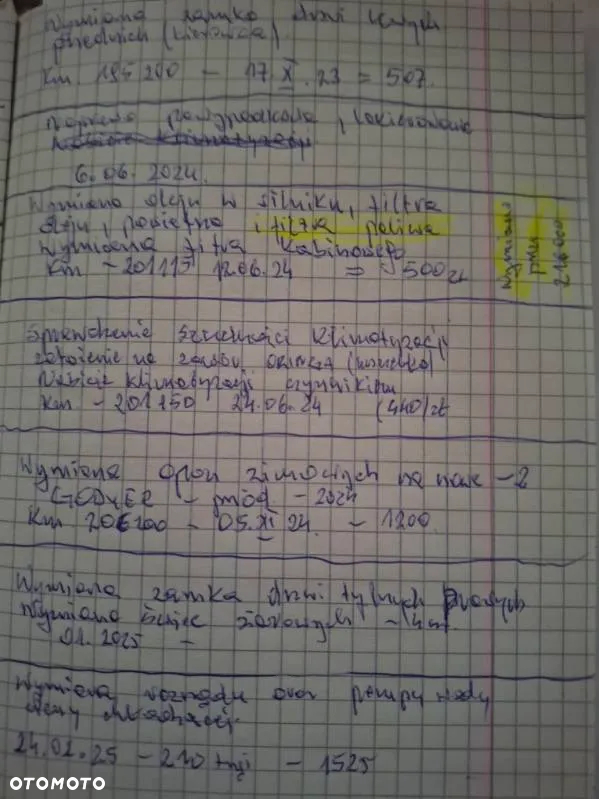 Wymiana zamka drzwi
przednich (kierowca)
Km 195200 - 17.XI.23 = 507.
lakierowanie
6.06.2024.
Wymiana oleju w silniku, filtra
oleju, powietrza i filtra paliwa
Wymiana filtra kabinowego
Km - 201115 12.06.24 = 500 zł
Wymiana
przy
216000
Sprawdzenie szczelności klimatyzacji
założenie na zawór (uszczelka)
Nabicie klimatyzacji czynnikiem
Km - 201150 24.06.24 (440) zł
Wymiana opon zimowych na nowe - 2
- prod - 2024
Km - 05.XI 24. - 1200.
Wymiana zamka drzwi tylnych prawych
Wymiana świec żarowych - 4 szt.
01.2025 -
Wymiana rozrządu oraz pompy wody
24.02.25 - 210 tyś - 1525
OTOMOTO